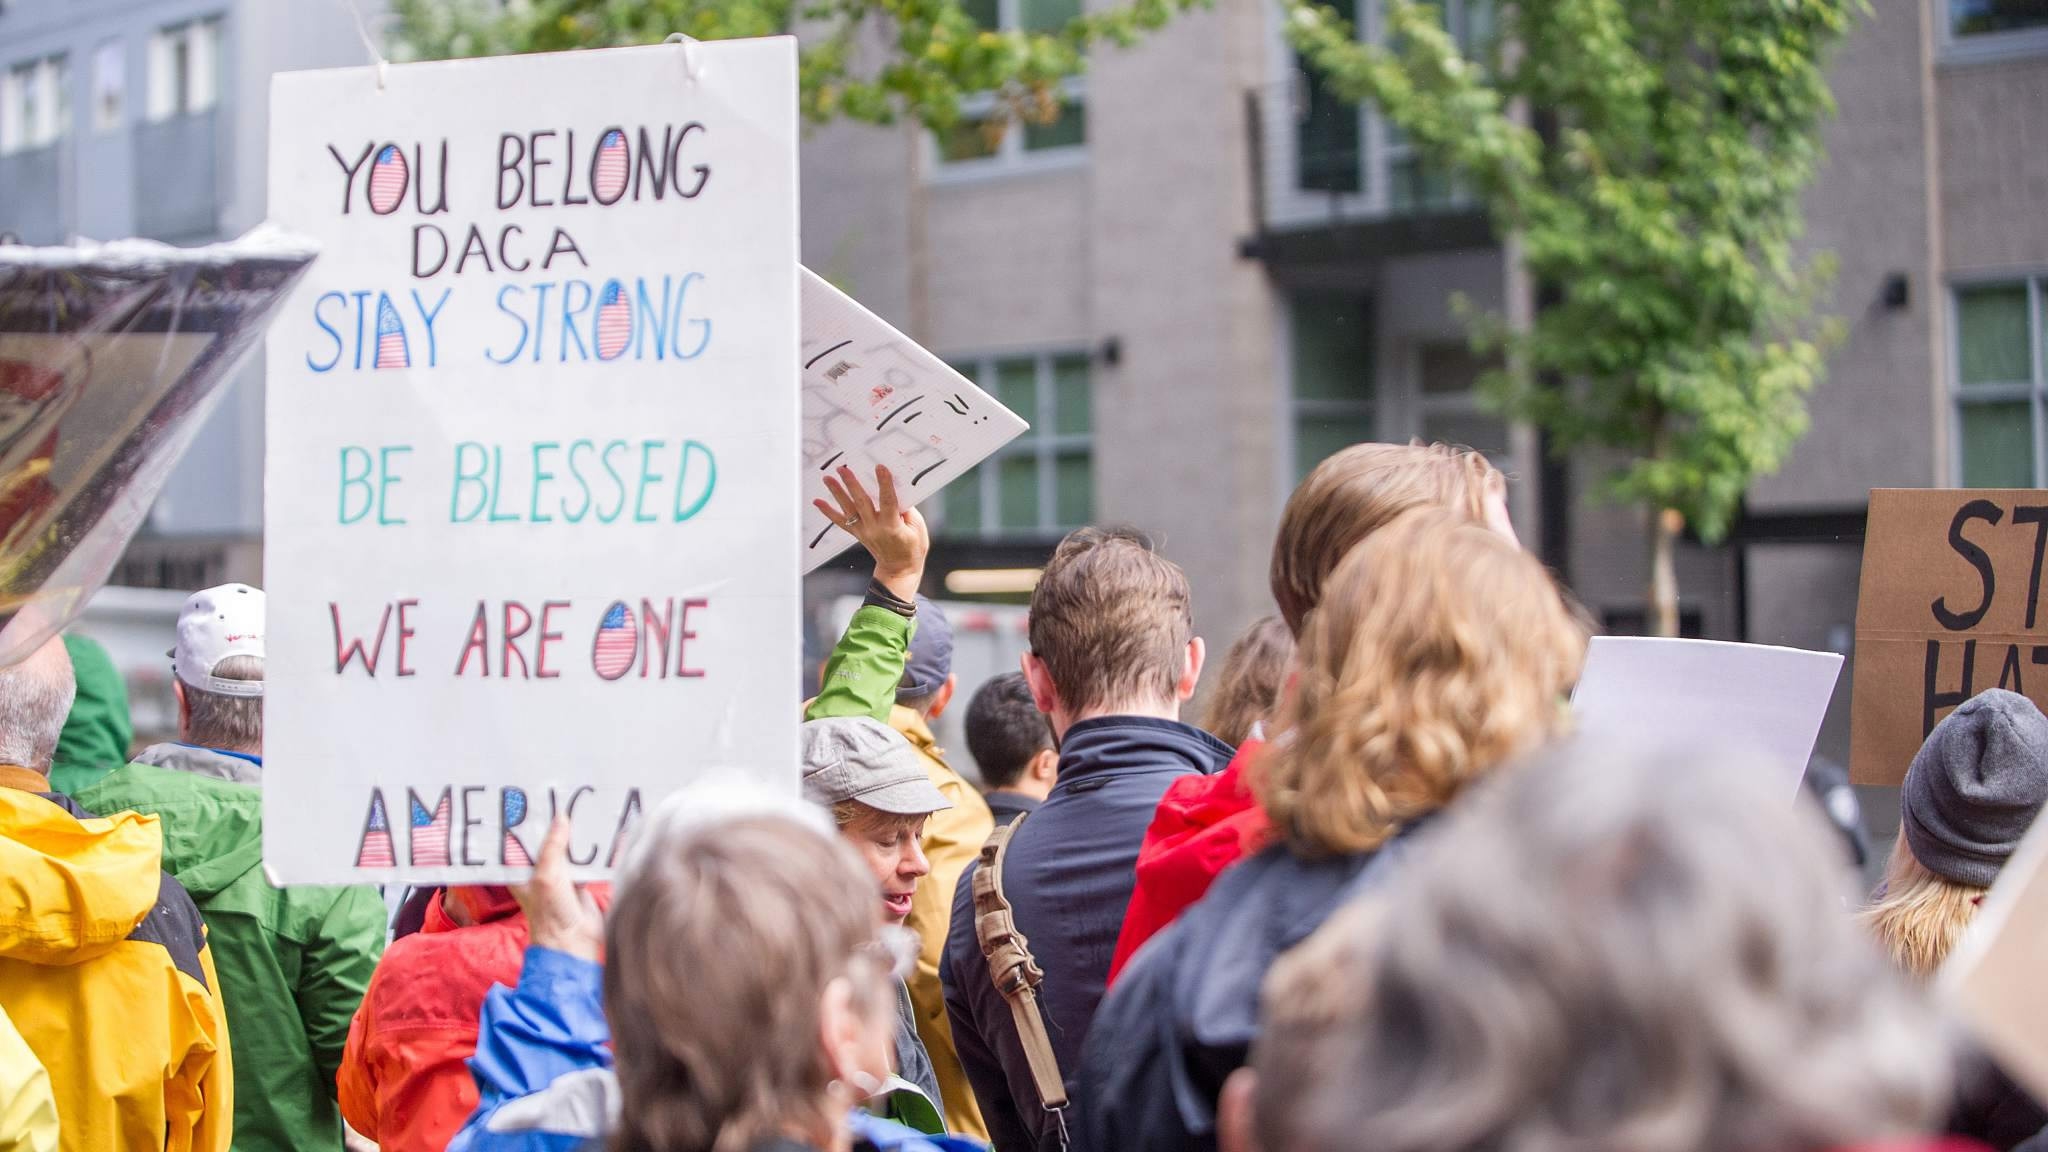 YOU BELONG
DACA
STAY STRONG
BE BLESSED
WE ARE ONE
AMERICA
ST
HAT